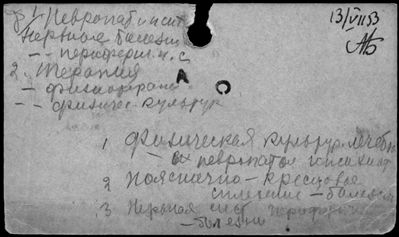 1 Невропатология
13/VII 53
Нервные болезни
-- периферич. н. с.
2. Терапия
А С
- физиотерапия
-- физичес. культура
1 Физическая культура лечебн.
- в невропатол. и психиат
2 Пояснично-крестцовое
сплетение - болезни
3 Нервная сист. периферич
- болезни